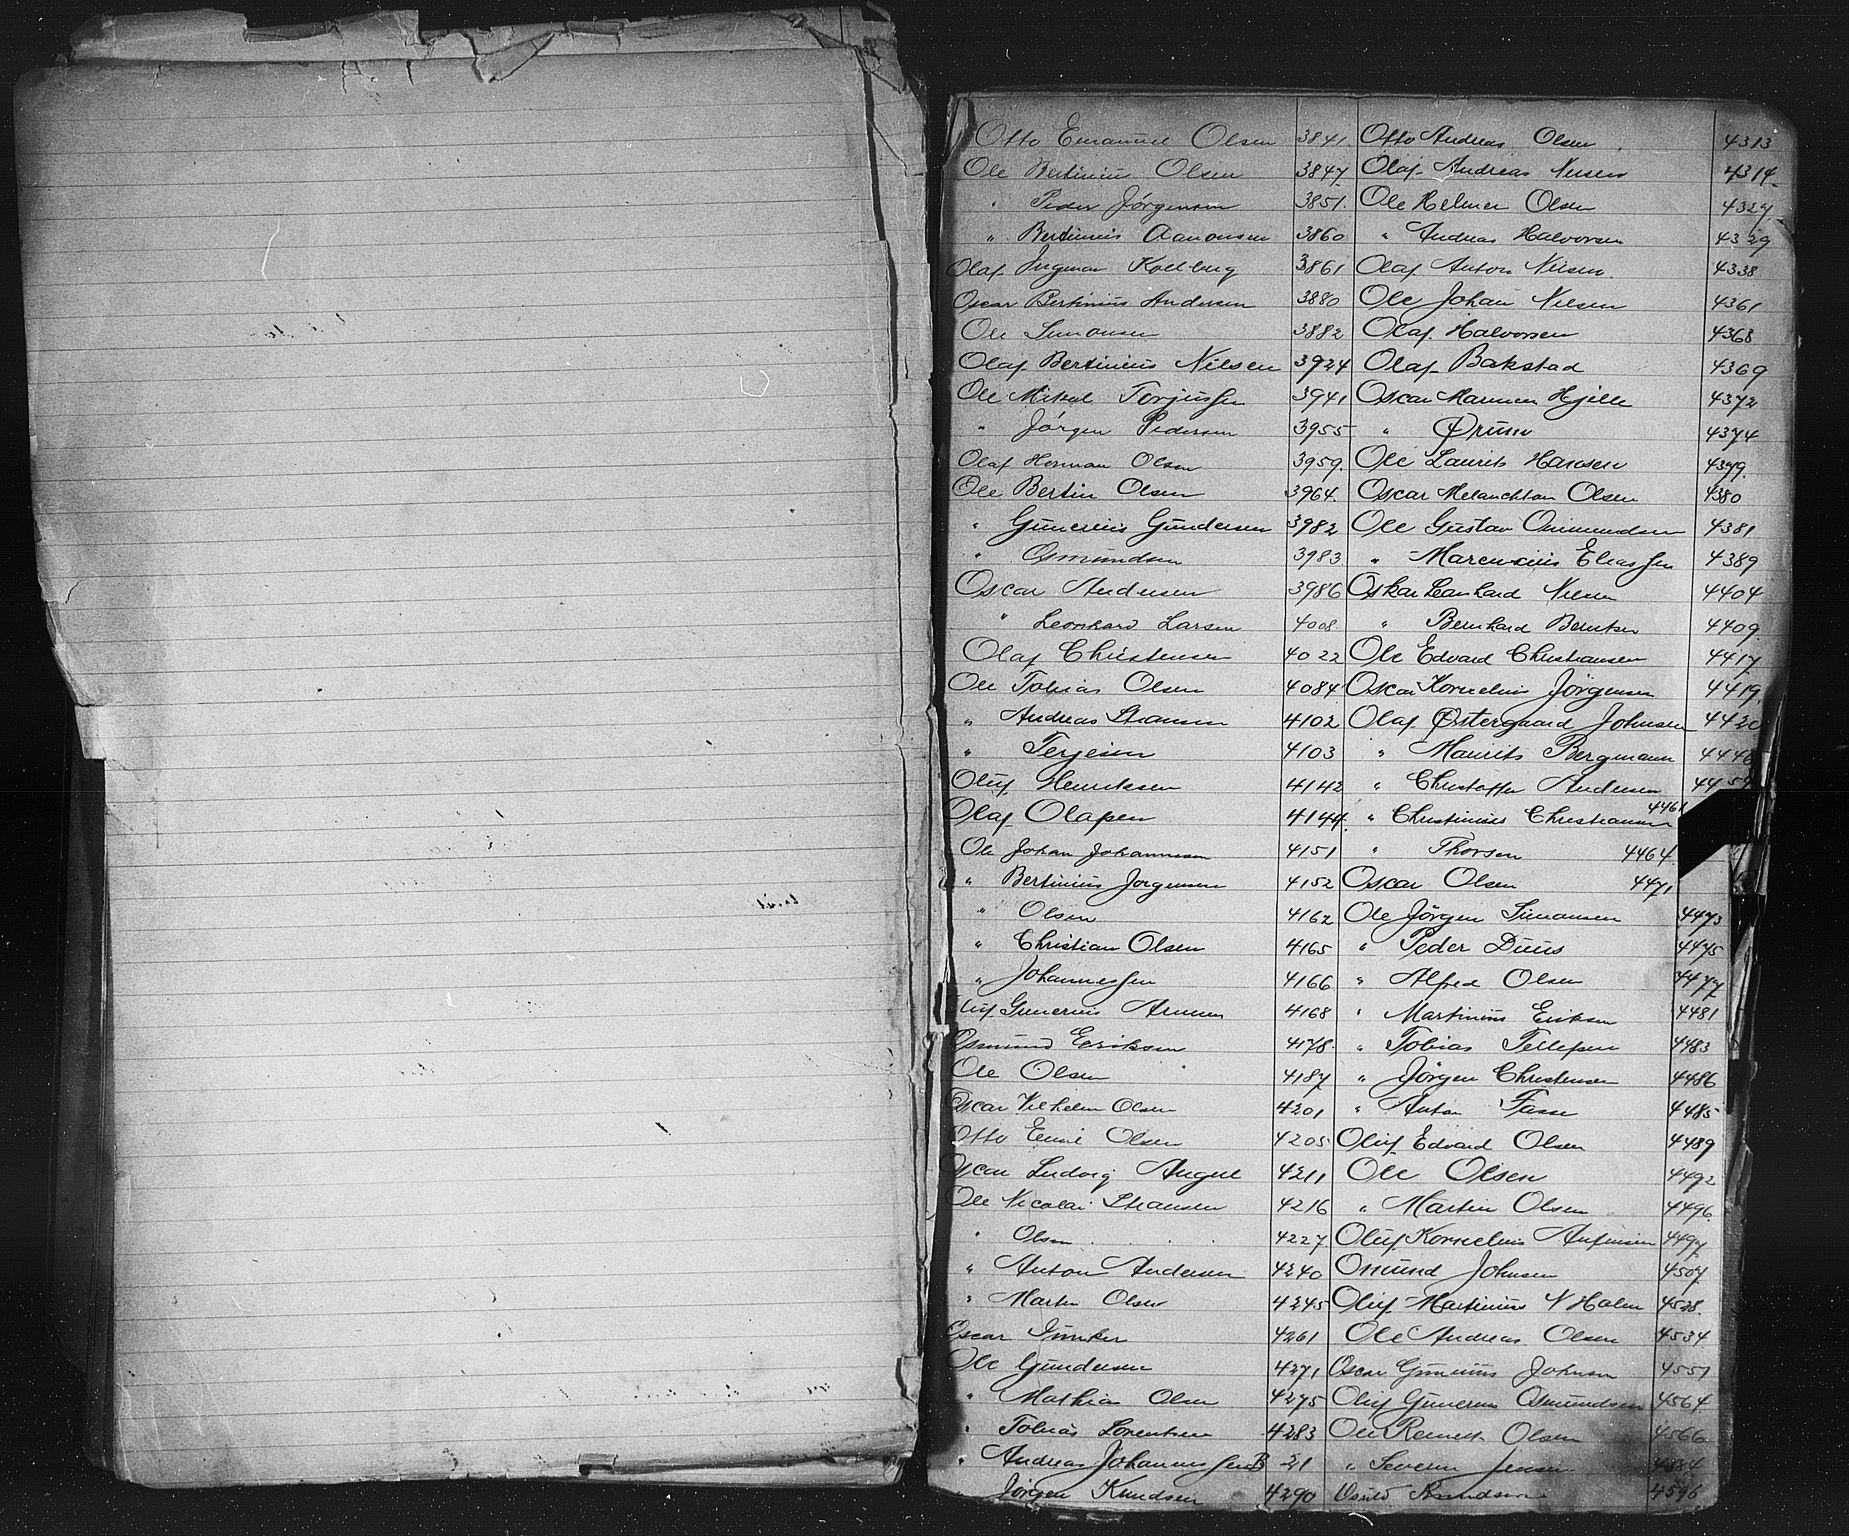 Otto Emanuel Olsen 3841. Otto Andreas Olsen 4313
Ole Bertinius Olsen 3847. Olaf Andreas Nilsen 4314
" Peder Jørgensen 3851. Ole Helmer Olsen 4327
" Bertinius Aanonsen 3860 " Andreas Halvorsen 4329
Olaf Ingmar Kolberg 3861 Olaf Anton Nilsen 4338
Oscar Bertinius Andersen 3880 Ole Johan Nilsen 4361
Ole Simonsen 3882 Olaf Halvorsen 4368
Olaf Bertinius Nilsen 3924 Olaf Bakstad 4369
Ole Mikal Torjussen 3941 Oscar Hjelle 4372
" Jørgen Pedersen 3955 " 4374
Olaf Herman Olsen 3959. Ole Laurits Hansen 4379.
Ole Bertin Olsen 3964. Oscar Melanchton Olsen 4380
" Gunerius Gundersen 3982 Ole Gustav Ommundsen 4381
" Osmundsen 3983 " Marcunius Eliassen 4389
Oscar Andersen 3986 Oskar Leonhard Nilsen 4404
" Leonhard Larsen 4008 " Bernhard Berntsen 4409.
Olaf Christensen 4022 Ole Edvard Christiansen 4417
Ole Tobias Olsen 4084 Oscar Kornelius Jørgensen 4419.
" Andreas Hansen 4102 Olaf Østergaard Johnsen 442
" Terjesen 4103 " Maurits Bergmann 4446
Oluf Henriksen 4142 " Christoffer Andersen 4459
Olaf Olafsen 4144. " Christinius Christiansen 4461
Ole Johan Johannesen 4151 " Thorsen 4464
" Bertinius Jørgensen 4152 Oscar Olsen 4471
" Olsen 4162 Ole Jørgen Simonsen 4473
" Christian Olsen 4165 " Peder Duus 4475
" Johannessen 4166 " Alfred Olsen 4477
Oluf Gunerius 4168 " Martinius Eriksen 4481
Osmund Eriksen 4178. " Tobias Tellefsen 4483
Ole Olsen 4187 " Jørgen Christensen 4486
Oscar Vilhelm Olsen 4201 " Anton Fasse 4485
Otto Emil Olsen 4205 Oluf Edvard Olsen 4489
Oscar Ludvig August 4211 Ole Olsen 4492
Ole Nicolai Hansen 4216 " Martin Olsen 4496.
" Olsen 4227. Oluf Kornelius Anfinsen 4497
" Anton Andersen 4240 Osmund Johnsen 4507
" Martin Olsen 4245 Oluf Martinius N Holm 4528.
Oscar Junker 4261 Ole Andreas Olsen 4534
Ole Gundersen 4271 Oscar Gunerius Johnsen 4551
" Mathias Olsen 4275 Oluf Gunerius Osmundsen 4564.
" Tobias Lorentsen 4283 Ole Olsen 4566
" Andreas Johannessen B 21 " Severin Jensen 4584
Jørgen Knudsen 4290 4596